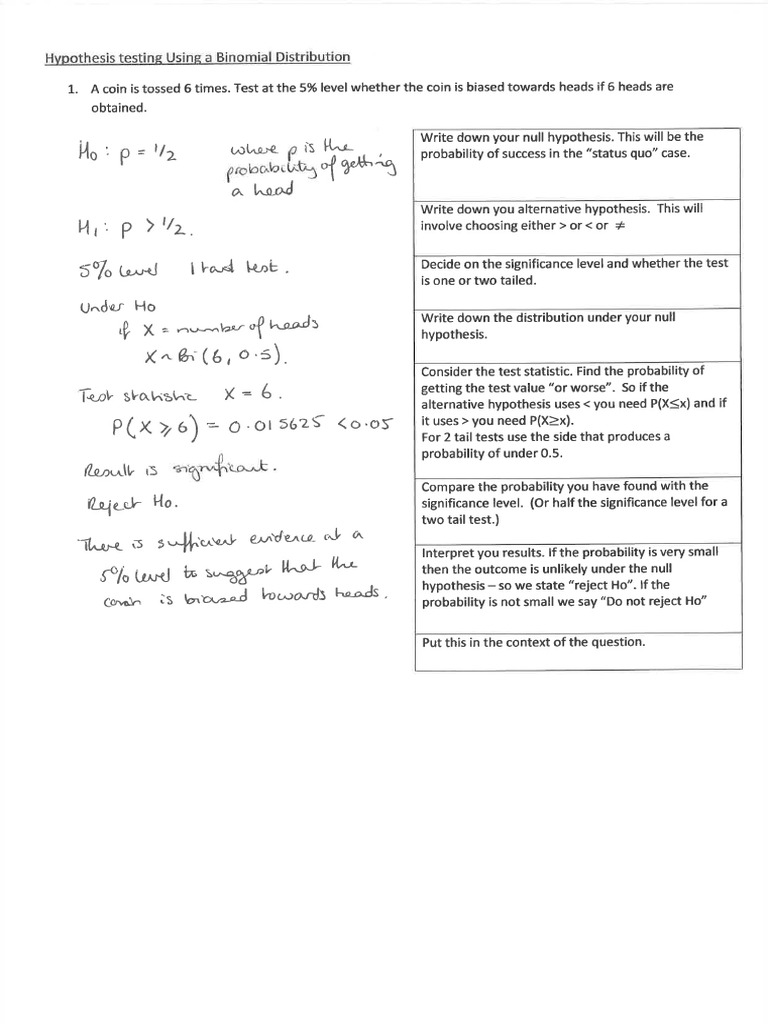 Hypothesis testing Using a Binomial Distribution
1. A coin is tossed 6 times. Test at the 5% level whether the coin is biased towards heads if 6 heads are
obtained.
H₀ : p = 1/2
where p is the
probability of getting
a head
H₁ : p > 1/2.
5% level 1 tail test.
Under H₀
if X = number of heads
X ~ Bi (6, 0.5).
Test statistic X = 6.
P(X ⩾ 6) = 0.015625 < 0.05
Result is significant.
Reject H₀.
There is sufficient evidence at a
5% level to suggest that the
coin is biased towards heads.
Write down your null hypothesis. This will be the
probability of success in the “status quo” case.
Write down you alternative hypothesis. This will
involve choosing either > or < or ≠
Decide on the significance level and whether the test
is one or two tailed.
Write down the distribution under your null
hypothesis.
Consider the test statistic. Find the probability of
getting the test value “or worse”. So if the
alternative hypothesis uses < you need P(X≤x) and if
it uses > you need P(X≥x).
For 2 tail tests use the side that produces a
probability of under 0.5.
Compare the probability you have found with the
significance level. (Or half the significance level for a
two tail test.)
Interpret you results. If the probability is very small
then the outcome is unlikely under the null
hypothesis – so we state “reject Ho”. If the
probability is not small we say “Do not reject Ho”
Put this in the context of the question.